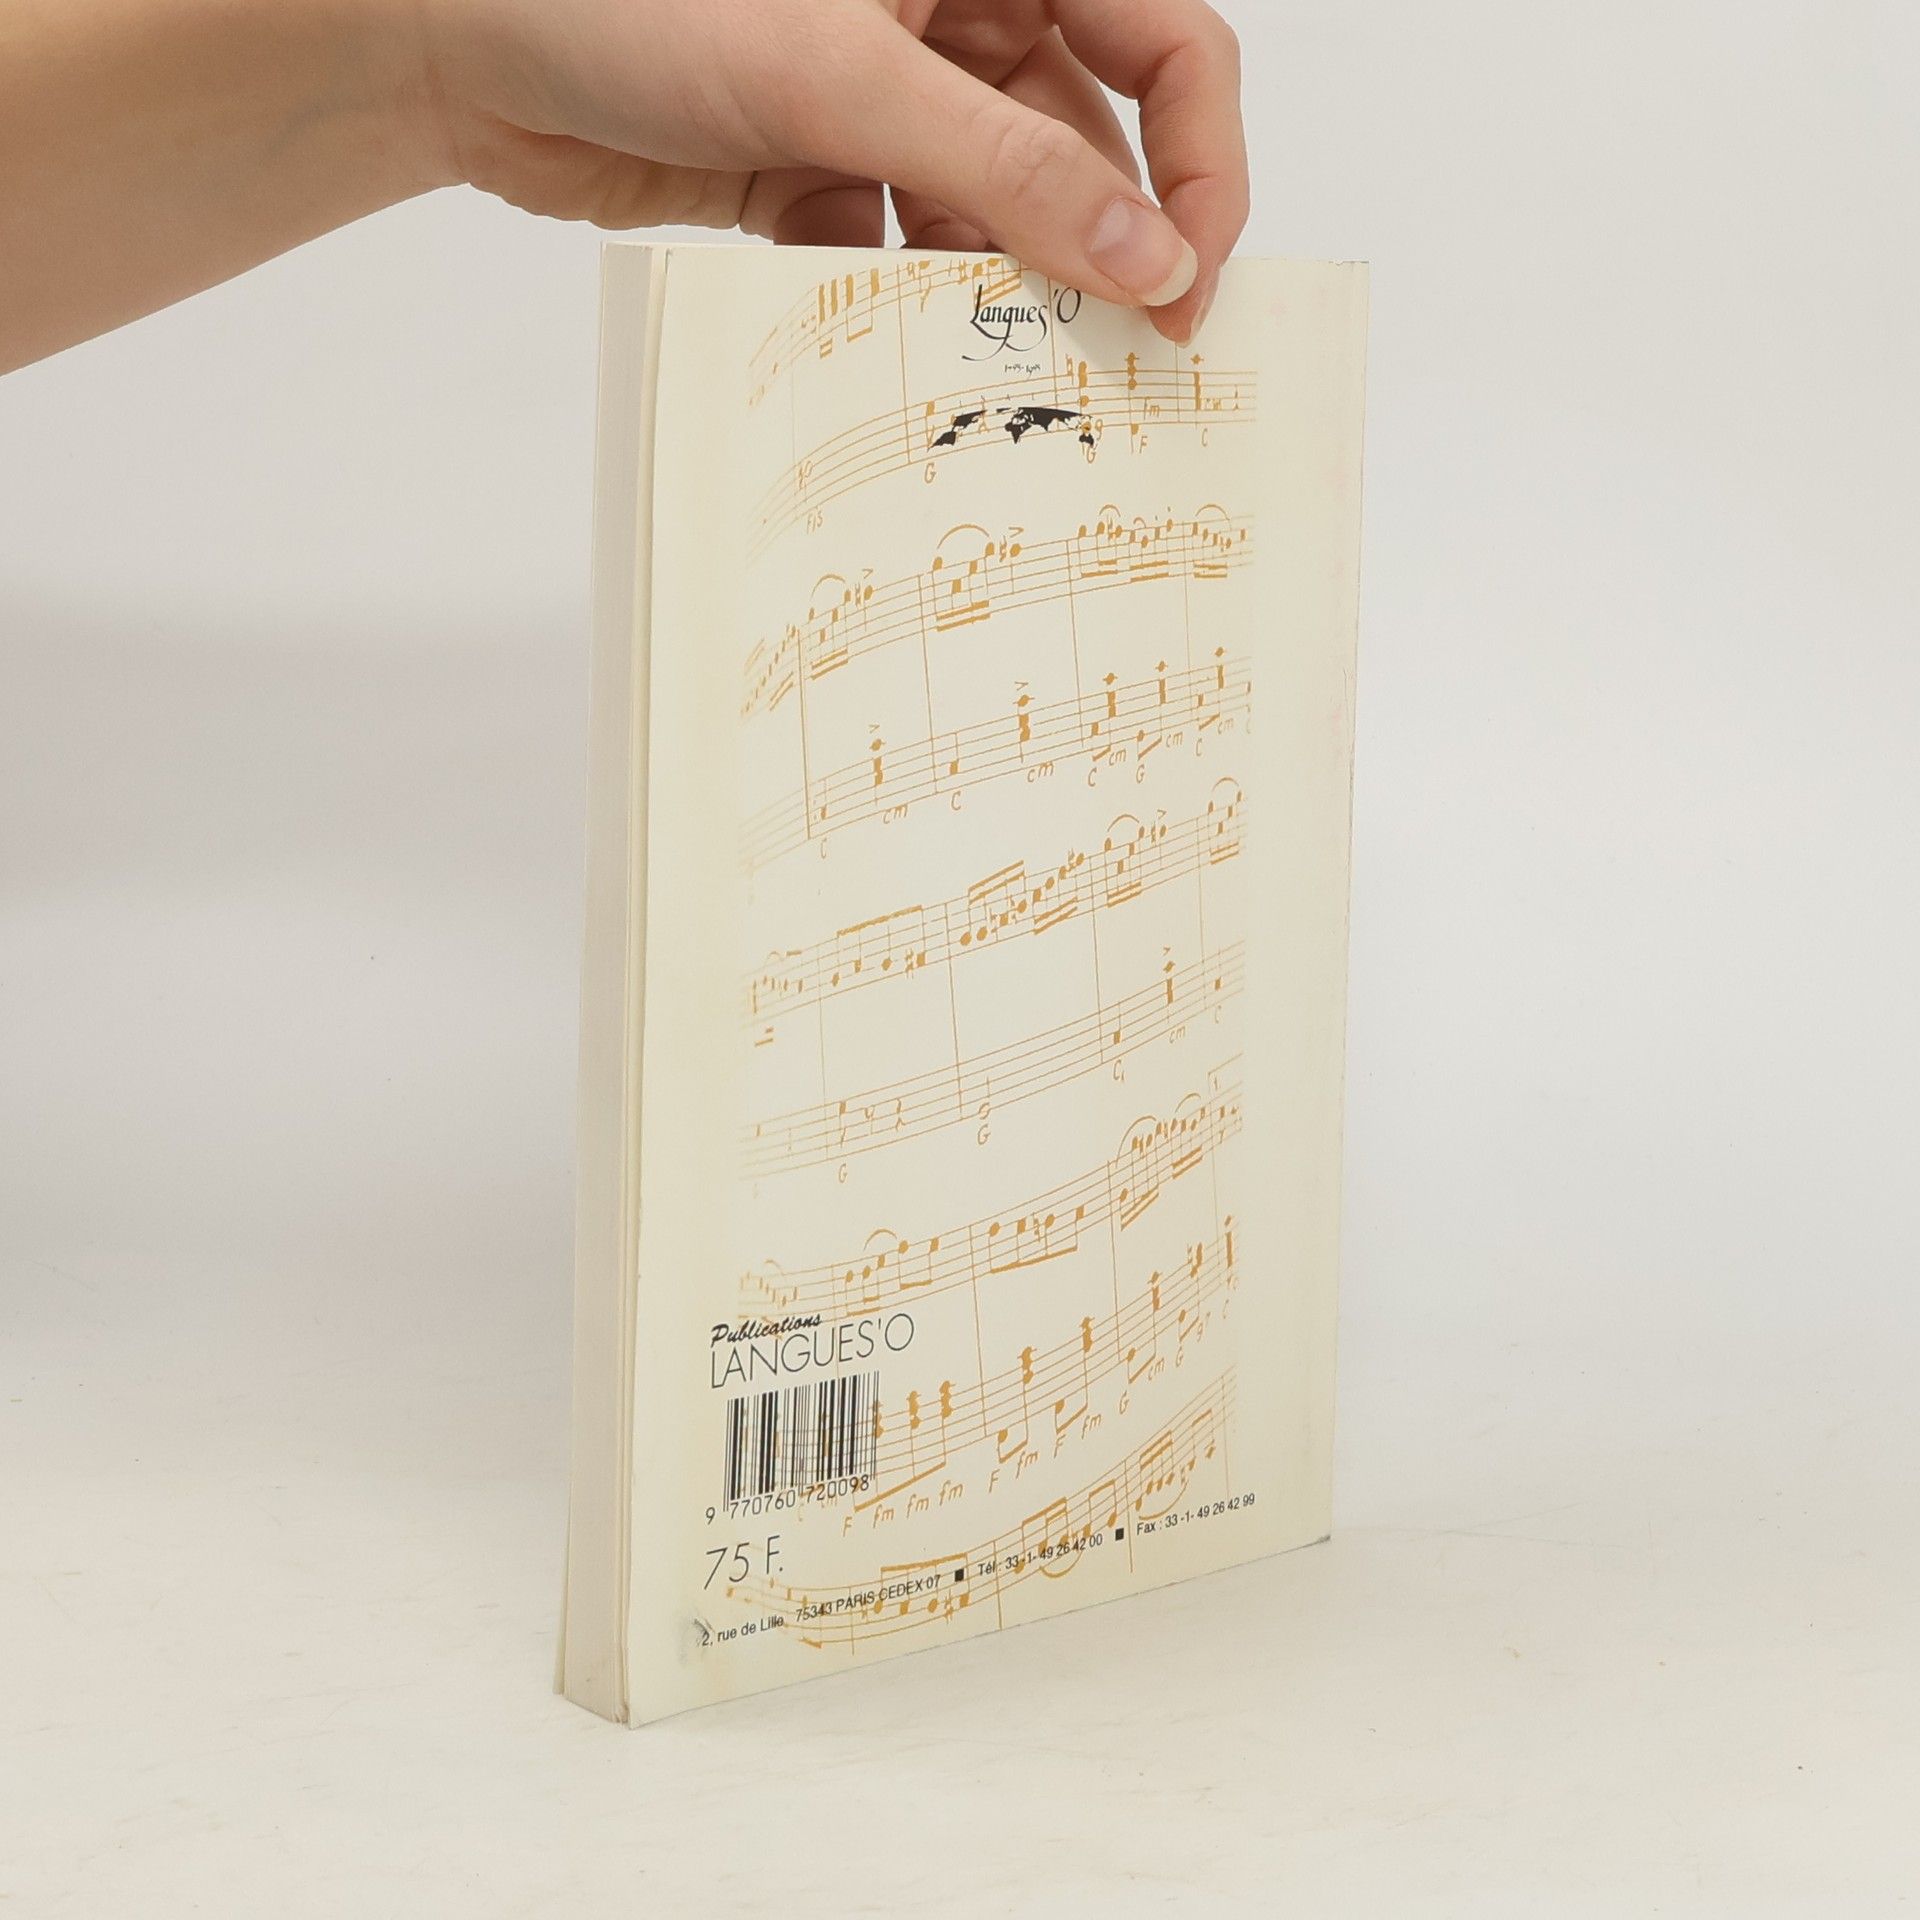 Langues'O
1795-1995
G
G
F
fm
C
cm
Fis
C
cm
C
cm
C
cm
G
cm
C
cm
G
G
C
cm
C
Publications
LANGUES'O
9 770760 720098
F fm fm fm F fm F fm G cm G
75 F.
2, rue de Lille 75343 PARIS CEDEX 07 ■ Tél : 33 -1- 49 26 42 00 ■ Fax : 33 -1- 49 26 42 99